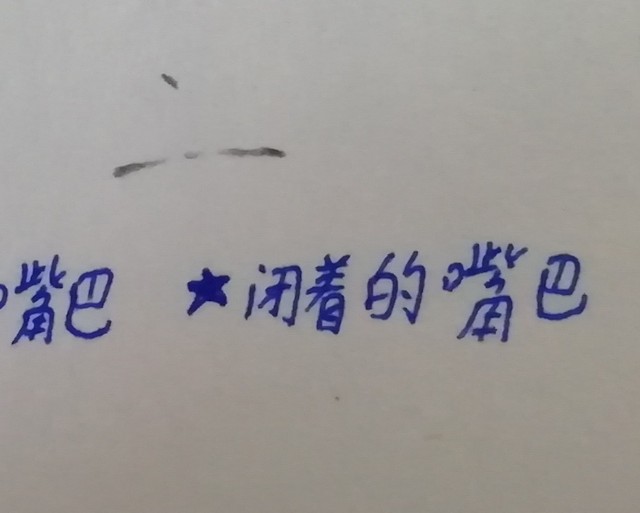 嘴巴 ★闭着的嘴巴